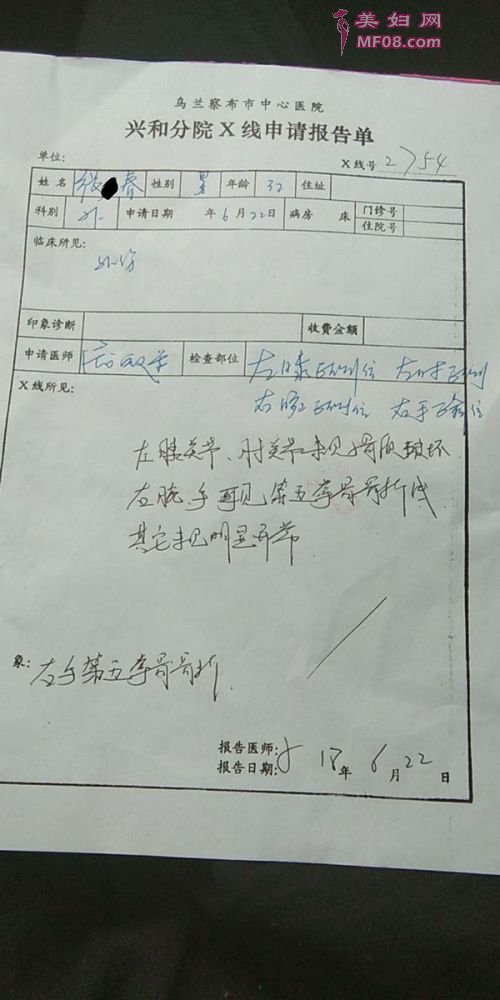 美妇网
MF08.com
乌兰察布市中心医院
兴和分院X线申请报告单
单位: X线号 2754
姓名 张 春 性别 男 年龄 32 住址
科别 外 申请日期 年6月22日 病房 床 门诊号
住院号
临床所见:
外伤
印象诊断 收费金额
申请医师 检查部位 左膝正侧位 左肘正侧
右腕正侧位 右手正斜位
X线所见:
左膝关节、肘关节未见骨质破坏
左腕、手可见第五掌骨骨折线
其它未见明显异常
象: 左手第五掌骨骨折.
报告医师:
报告日期: 18年6月22日